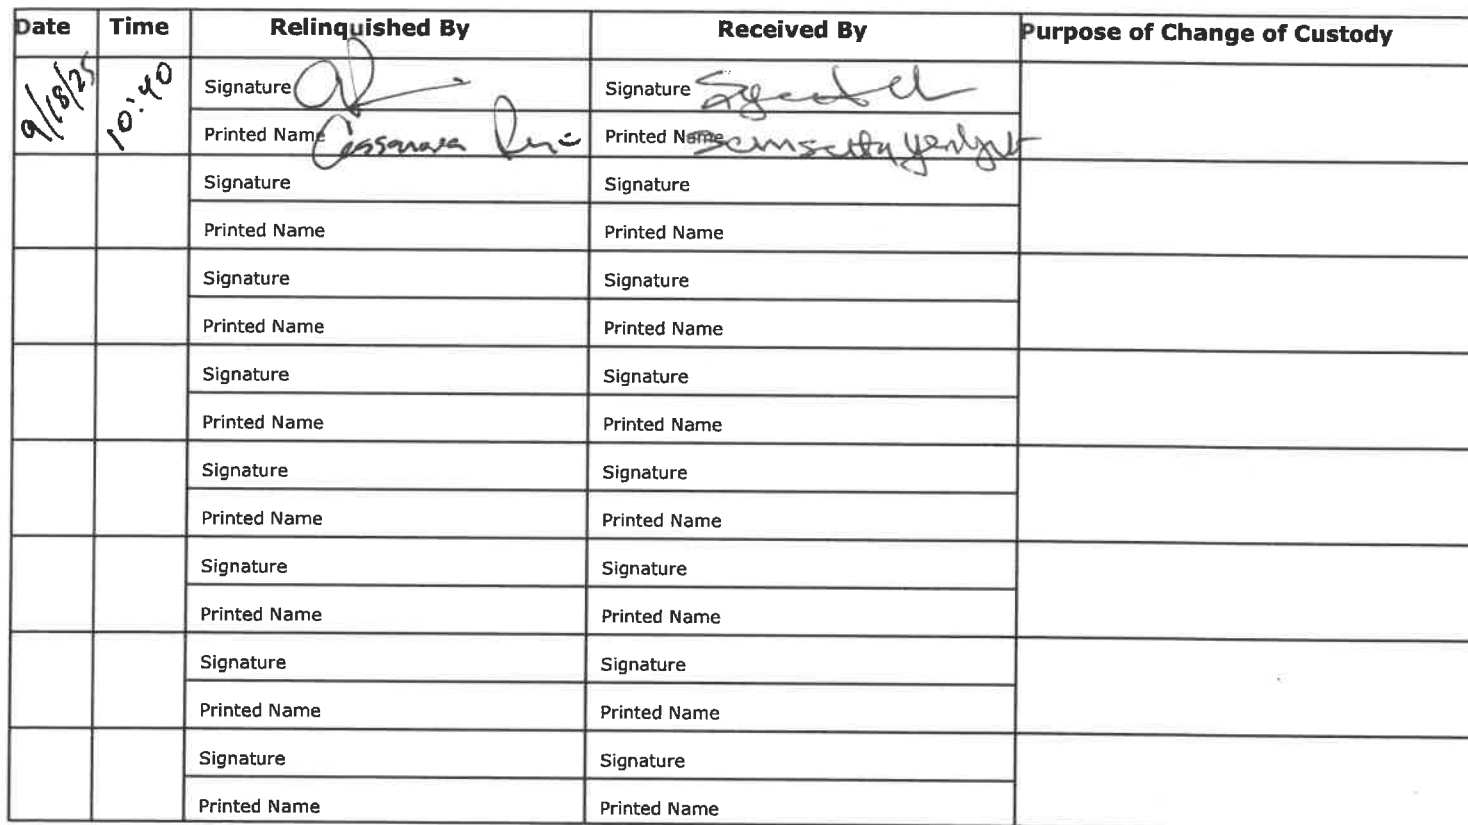 Date Time Relinquished By Received By Purpose of Change of Custody
9/18/25 10:40 Signature Signature
Printed Name Printed Name
Signature Signature
Printed Name Printed Name
Signature Signature
Printed Name Printed Name
Signature Signature
Printed Name Printed Name
Signature Signature
Printed Name Printed Name
Signature Signature
Printed Name Printed Name
Signature Signature
Printed Name Printed Name
Signature Signature
Printed Name Printed Name